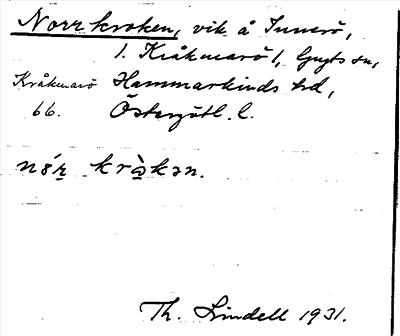 Norrkroken, vik å Innerö,
1. Kråkmarö 1, Gryts sn,
Kråkmarö Hammarkinds hd,
66. Östergötl. l.
nǒr kròkən.
Th. Lindell 1931.